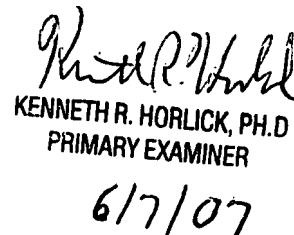 Kenneth R. Horlick
KENNETH R. HORLICK, PH.D
PRIMARY EXAMINER
6/7/07